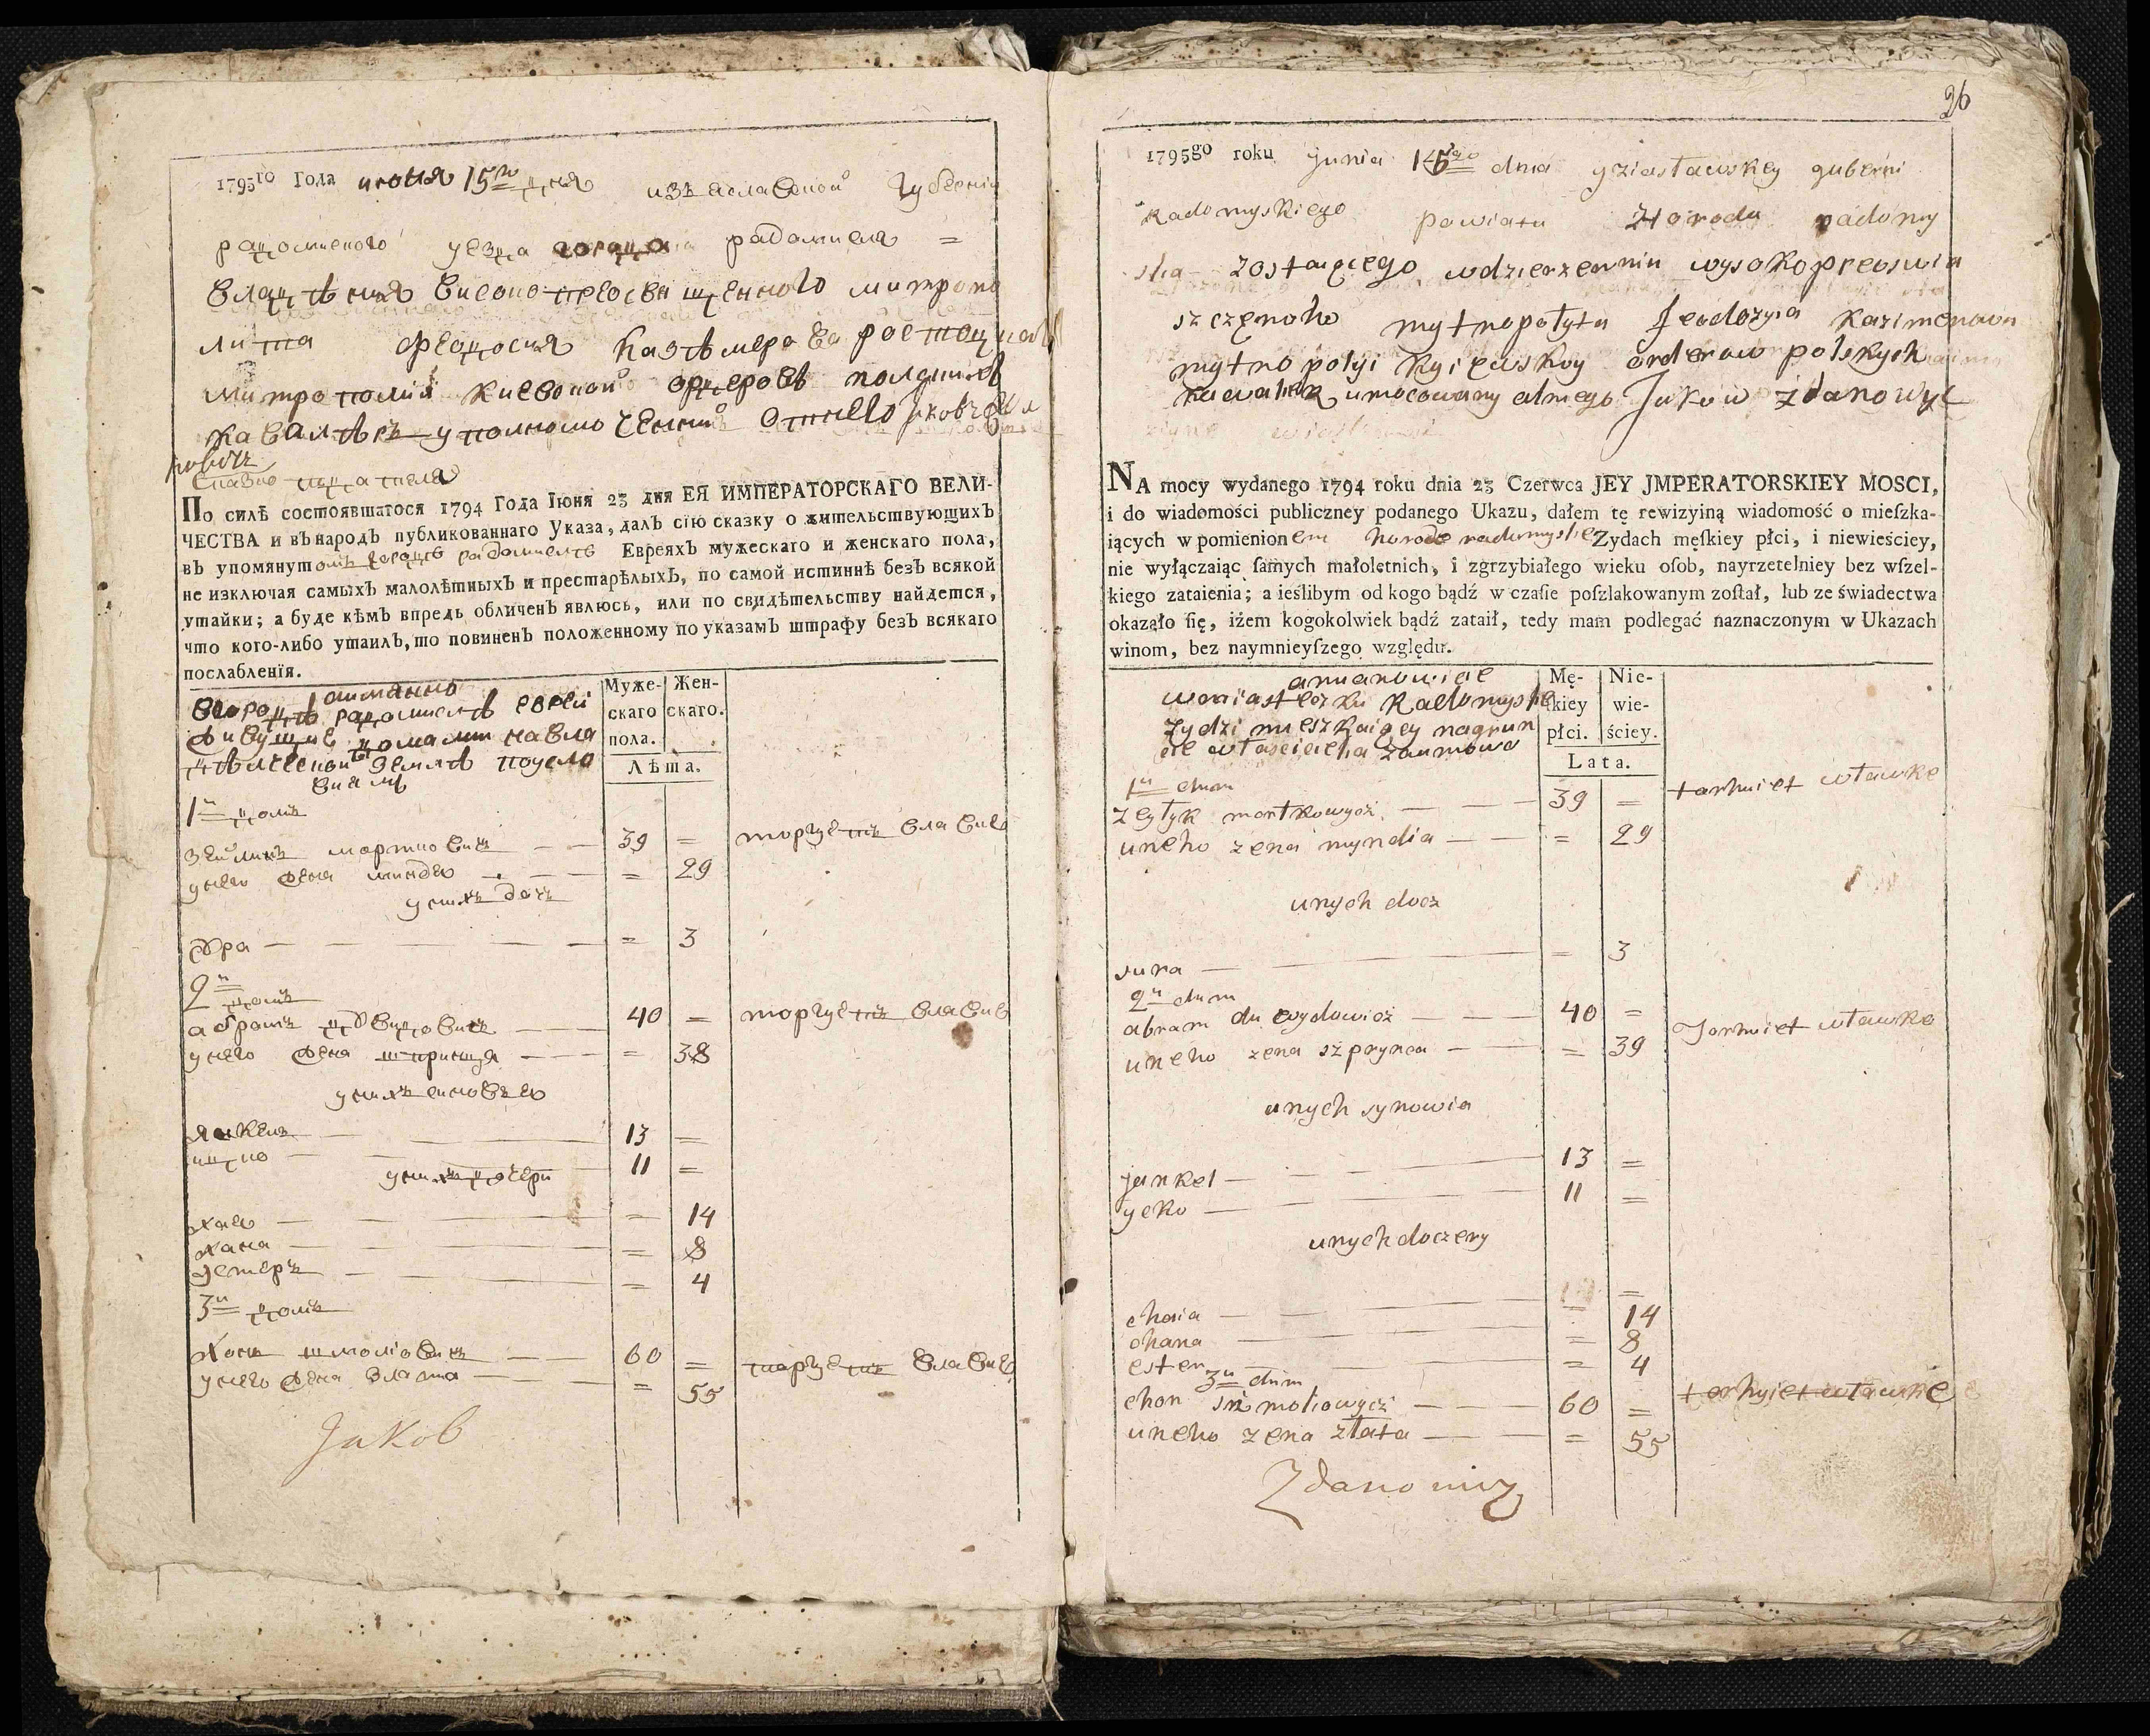 1795го Года июня 15го дня изъяславской губернии
радомского уезда города радомисля =
владѣния високопреосвищенного митропо
лита феодосия
митрополии киевской ордеровъ полскихъ
кавалѣръ уполномоченний
По силѣ состоявшагося 1794 Года Іюня 23 дня ЕЯ ИМПЕРАТОРСКАГО ВЕЛИ-
ЧЕСТВА и въ народъ публикованнаго Указа, далъ сію сказку о жительствующихъ
въ упомянутомъ городѣ радомислѣ Евреяхъ мужескаго и женскаго пола,
не изключая самыхъ малолѣтныхъ и престарѣлыхъ, по самой истиннѣ безъ всякой
утайки; а буде кѣмъ впредь обличенъ явлюсь, или по свидѣтельству найдется,
что кого-либо утаилъ, то повиненъ положенному по указамъ штрафу безъ всякаго
послабленія.
имянно
вгородѣ радомислѣ евреи
живущие домами навла
дѣлческой землѣ
Муже-скаго пола. Жен-скаго.
Лѣта.
1й домъ
зейликъ мортковичъ — — 39 = торгуетъ влавке
унего жена миндя — — = 29
унихъ дочъ
сура — — = 3
2й домъ
абрамъ дувидовичъ — — 40 = торгуетъ влавке
унего жена шпринця — — = 38
унихъ синовъя
янкель — — 13 =
ицко — — 11 =
унихъ дочери
хая — — = 14
хана — — = 8
естеръ — — = 4
3й домъ
хонъ шмолiовичъ — — 60 = торгуетъ влавке
унего жена злата — — = 55
Jakob
26
1795go roku junia 15go dnia yziasławskey guberni
Radomyskiego powiatu horodu radomy
sla zostaiącego wdzierzenniu wysokopreoswia
szczęnoho mytropołyta feodozyia
mytropołyi kyiewskoy orderow polskych
kawaler umocowany Jakow zdanowycz
NA mocy wydanego 1794 roku dnia 23 Czerwca JEY JMPERATORSKIEY MOSCI,
i do wiadomości publiczney podanego Ukazu, dałem tę rewizyiną wiadomość o mieſzka-
iących w pomienionem horode radomyśle Zydach męſkiey płci, i niewieściey,
nie wyłączaiąc ſamych małoletnich, i zgrzybiałego wieku oſob, nayrzetelniey bez wſzel-
kiego zataienia; a ieślibym od kogo bądź w czaſie poſzlakowanym zoſtał, lub ze świadectwa
okazało ſię, iżem kogokolwiek bądź zataił, tedy mam podlegać naznaczonym w Ukazach
winom, bez naymnieyſzego względu.
amianowicie
wmiasteczku Radomyslu
zydzi mieszkaiący nagrun
cie własciciela
Mę-kiey płci. Nie-wie-ściey.
Lata.
1u dum
zeylyk mortkowycz — — 39 = tarhuiet wławke
uneho zena myndia — — = 29
unych docz
sura — — = 3
2u dum
abram duwydowicz — — 40 = Jarhuiet wławke
uneho zena szprynca — — = 39
unych synowia
jankel — — 13 =
ycko — — 11 =
unych doczery
chaia — — = 14
chana — — = 8
ester — — = 4
3u dum
chon szmoliowycz — — 60 = tarhuiet wławke
uneho zena złata — — = 55
Zdanowicz